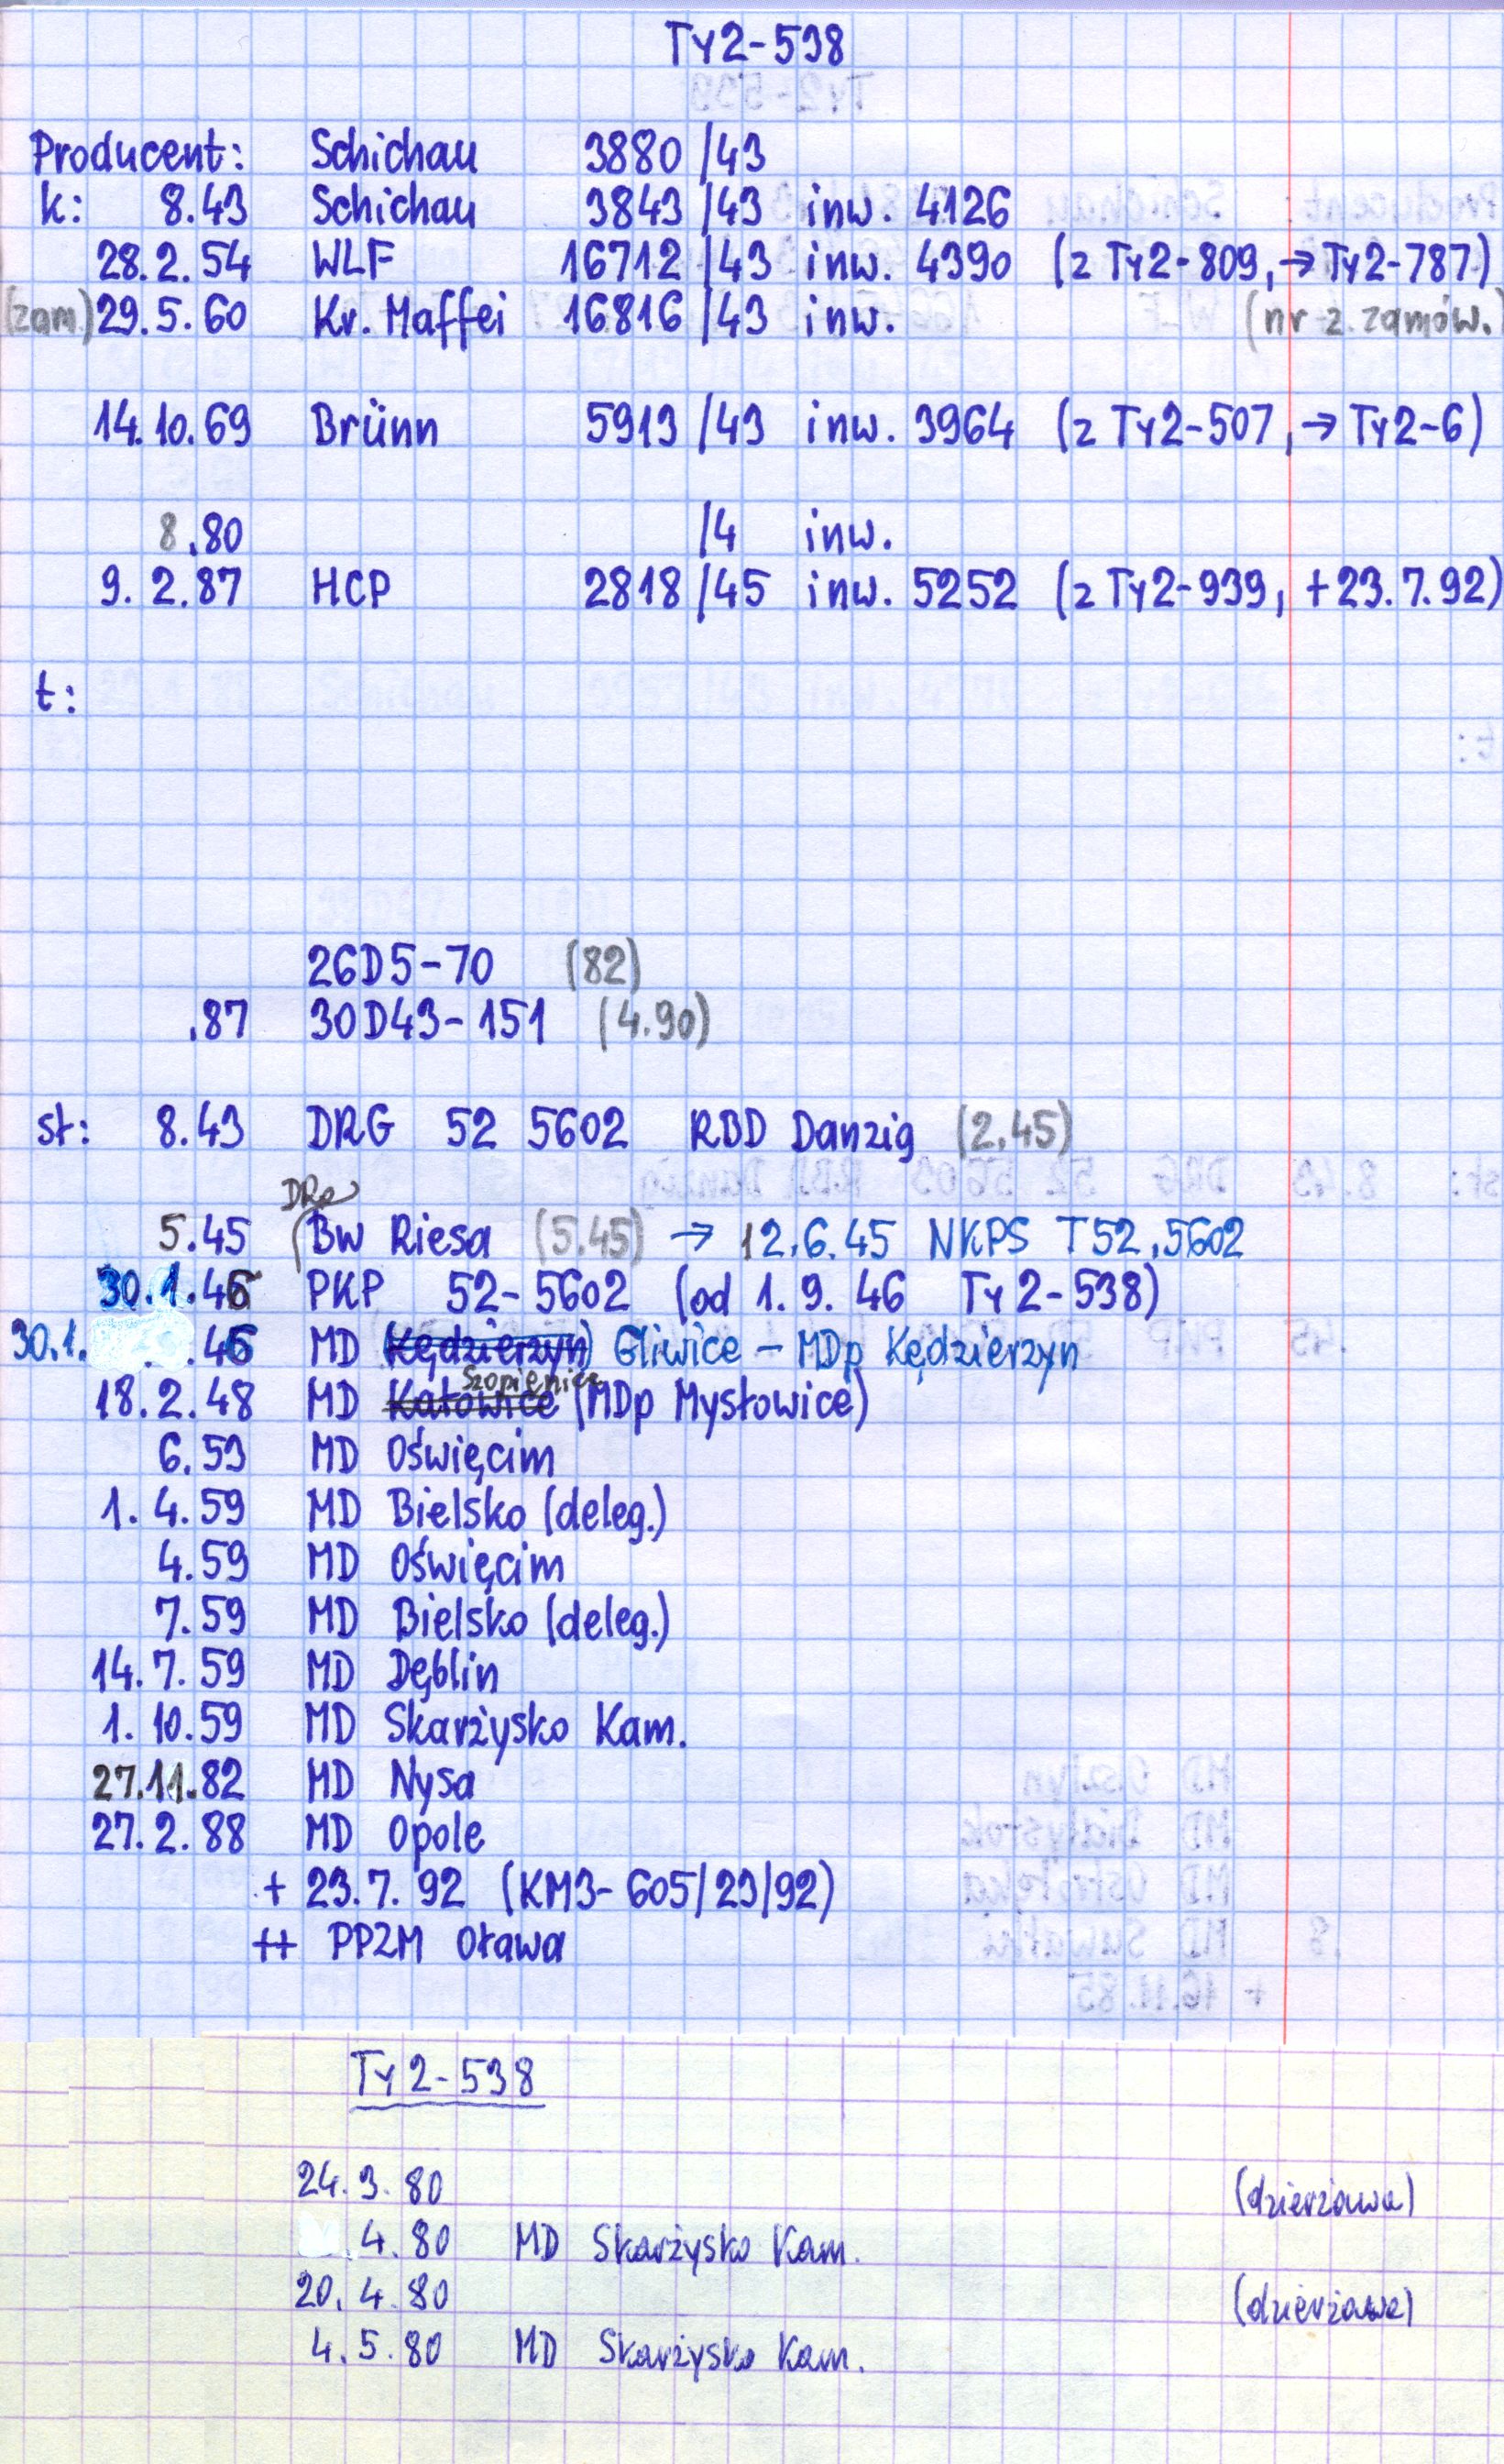 Ty2-538
Producent: Schichau 3880/43
k: 8.43 Schichau 3843/43 inw. 4126
28.2.54 WLF 16712/43 inw. 4390 (z Ty2-809, → Ty2-787)
(zam.) 29.5.60 Kr. Maffei 16816/43 inw. (nr z zamów.)
14.10.69 Brünn 5913/43 inw. 3964 (z Ty2-507, → Ty2-6)
8.80 /4 inw.
9.2.87 HCP 2818/45 inw. 5252 (z Ty2-939, +23.7.92)
t:
26D5-70 (82)
.87 30D43-151 (4.90)
st: 8.43 DRG 52 5602 RBD Danzig (2.45)
5.45 (Bw Riesa (5.45) → 12.6.45 NKPS T52.5602
30.1.46 PKP 52-5602 (od 1.9.46 Ty2-538)
30.1. .46 MD (Kędzierzyn) Gliwice - MDp Kędzierzyn
Szopienice
18.2.48 MD Katowice (MDp Mysłowice)
6.53 MD Oświęcim
1.4.59 MD Bielsko (deleg.)
4.59 MD Oświęcim
7.59 MD Bielsko (deleg.)
14.7.59 MD Dęblin
1.10.59 MD Skarżysko Kam.
27.11.82 MD Nysa
27.2.88 MD Opole
+ 23.7.92 (KM3-605/23/92)
++ PPZM Oława
Ty2-538
24.3.80 (dzierżawa)
.4.80 MD Skarżysko Kam.
20.4.80 (dzierżawa)
4.5.80 MD Skarżysko Kam.